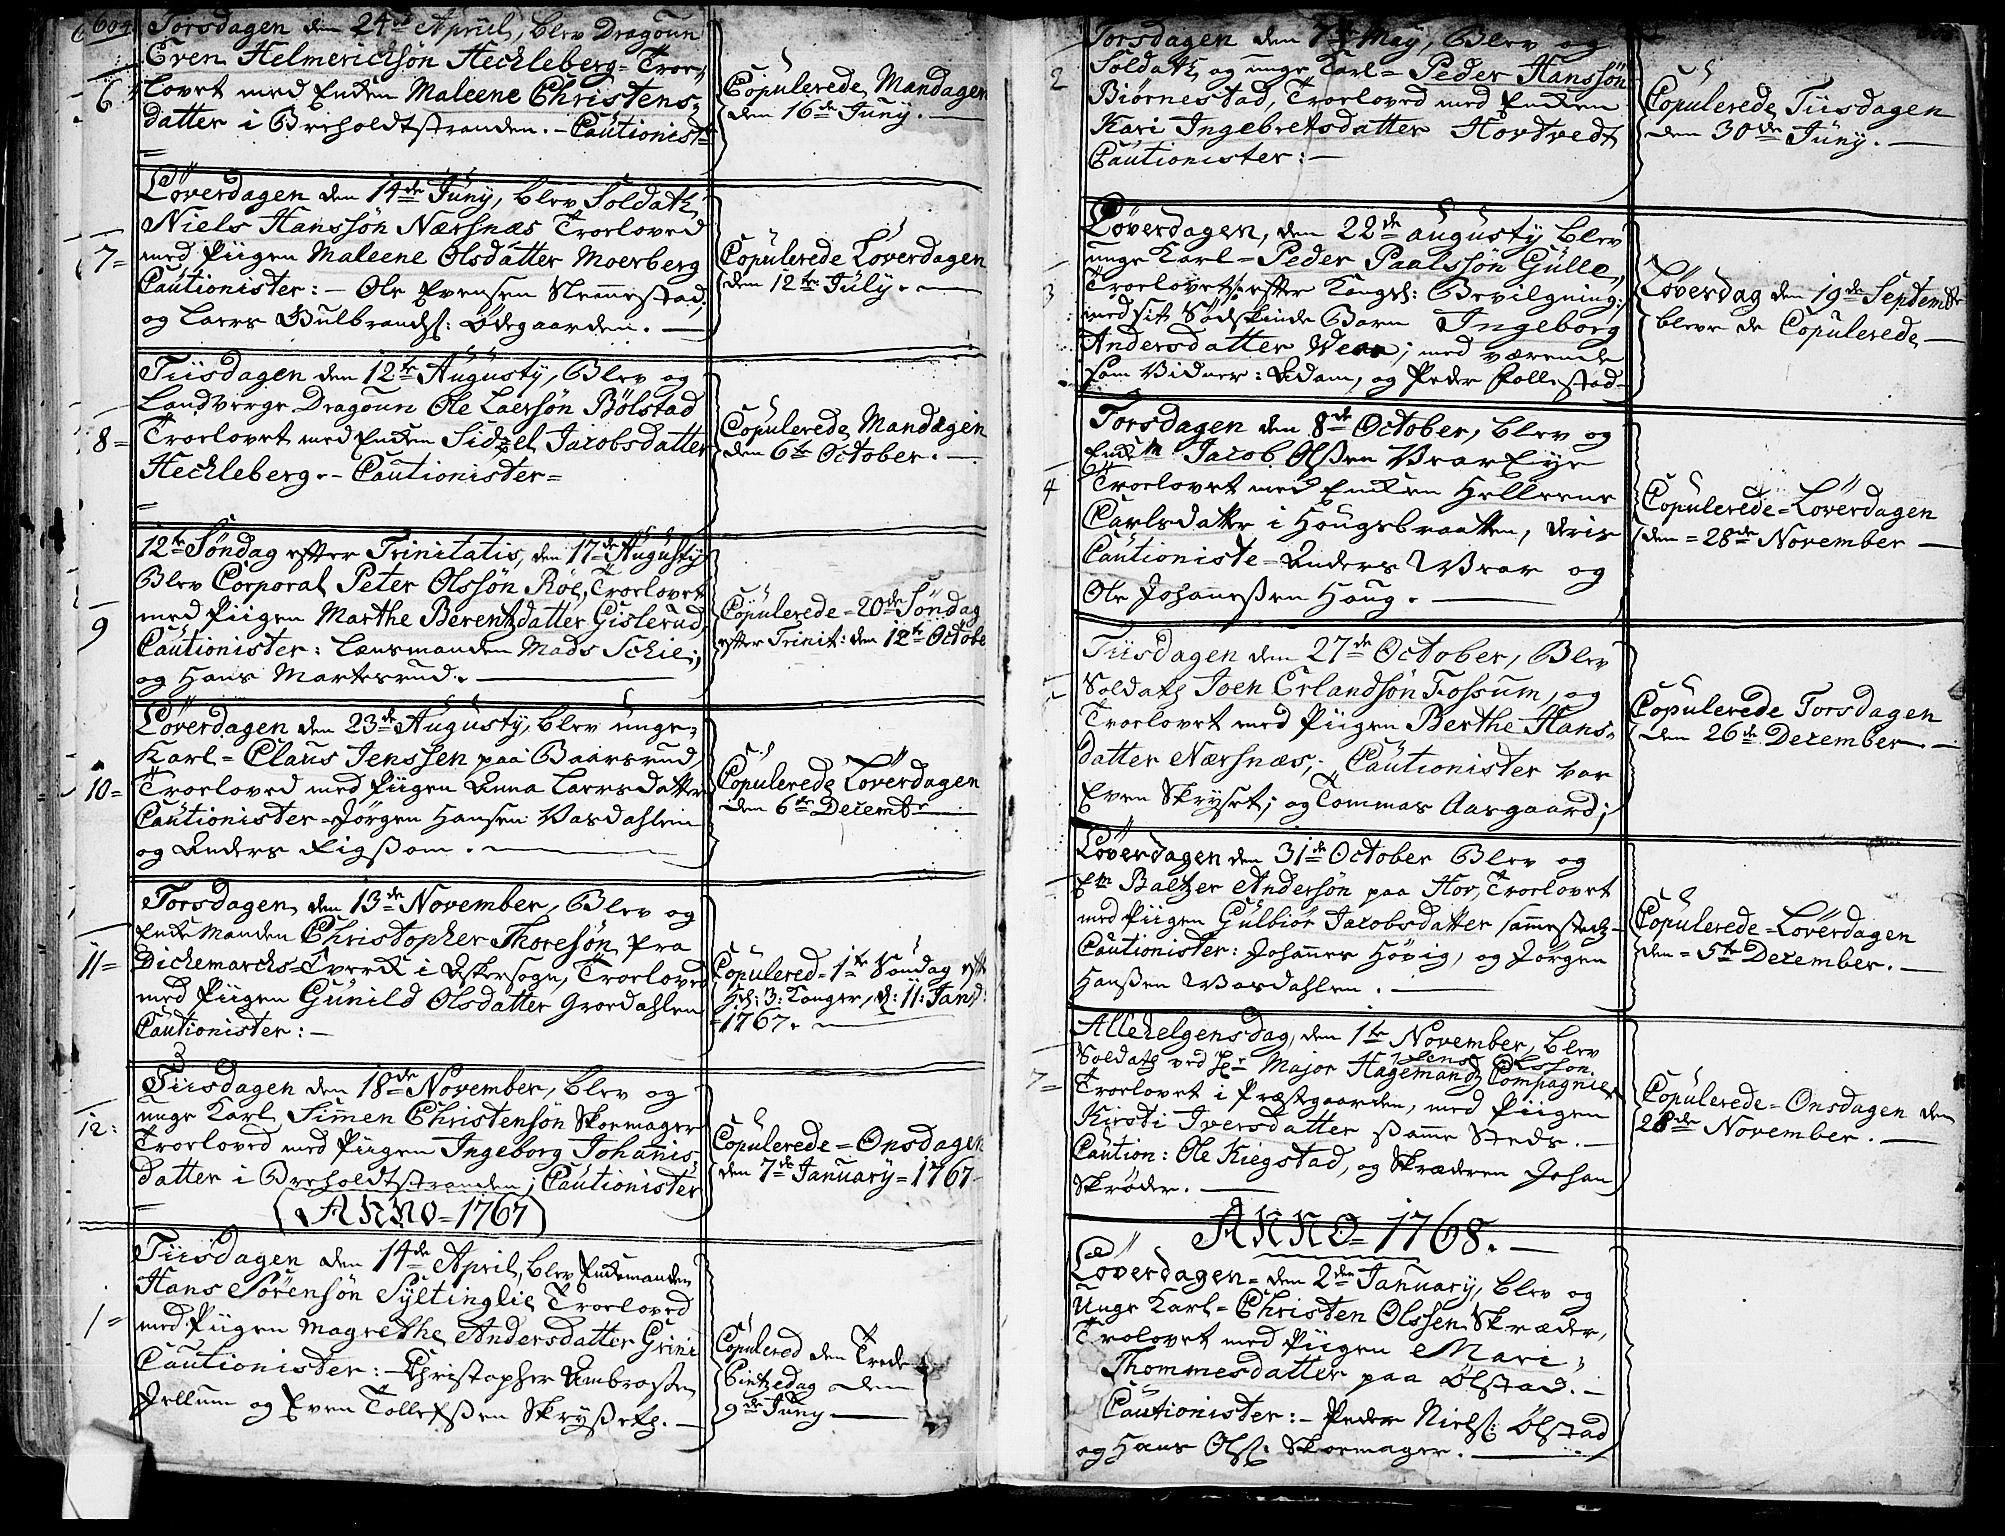 604
Torsdagen den 24de Apriil, blev Dragoun
Even Helmerichsön Heckleberg= Troe,
6
lovet med Enken Maleene Christens=
datter i Breholdtstranden. - Cautionist=
Copulerede Mandagen
den 16de Juny. —
Löverdagen den 14de Juny, blev Soldath,
Niels Hanssön Nærsnæs Troeloved
7=
med Piigen Maleene Olsdatter Moerberg
Cautionister: - Ole Evensen Nemestad,
og Laers Gulbrands: Ödegaarden. —
Copulerede Löverdagen
den 12te July. —
Tiisdagen den 12te Augusty, Blev og
Landverge Dragoun Ole Laersön Bölstad
8=
Troelovet med Enken Sidzel Jacobsdatter
Heckleberg. - Cautionister=
Copulerede Mandagen
den 6te October. —
12te Söndag efter Trinitatis, den 17de Augusty
Blev Corporal Peter Olssön Roe, Troelovet
9
med Piigen Marthe Berentzdatter Gislerud,
Cautionister: Lænsmanden Mads Schie;
og Hans Martesrud. —
Copulerede= 20de Söndag
efter Trinit: den 12te Octobe
Löverdagen den 23de Augusty, blev unge=
Karl= Claus Jenssen paa Baarsrud,
10=
Troeloved med Piigen Anna Laersdatter
Cautionister= Jörgen Hansen Vasdahlen
og Anders . —
Copulerede Löverdagen
den 6te Decembr —
Torsdagen, den 13de November, Blev og
Enke Manden Christopher Thoresön fra
11=
Dichemarchs= Tverk i Askersogn, Troeloved
med Piigen Gunild Olsdatter Groedahlen
Cautionister: —
Copulered= 1te Söndag eft
Hel: 3: Konger, d: 11: Jan:
=1767. —
Tiisdagen den 18de November, blev og
unge Karl Simen Christensön Skoemager
12:
Troeloved med Piigen Ingeborg Johanis=
datter i Breholdtstranden; Cautionister
Copulerede= Onsdagen
den 7de January= 1767
ANNO= 1767
Tiisdagen den 14de April, blev Enkemanden
Hans Sörensön Syltinglie Troeloved
1=
med Piigen Magrethe Andersdatter Grini
Cautionister: - Christopher Ambrosen
Jellum og Even Tollefssen Skrysseth. —
Copulered den Trede
Pintzedag den
9de Juny —
Torsdagen den 7de May, Blev og
2
Soldath, og unge Karl= Peder Hanssön
Biörnestad, Troeloved med Enken
Kari Ingebretsdatter Hovtvedt
Cautionister: —
Copulerede Tiisdagen
den 30de Juny. —
Löverdagen, den 22de augusty blev
unge Karl= Peder Paalssön Gulle,
3
Troelovet /: efter Kongel: Bevilgning:/
med sit Södskinde Barn Ingeborg
Andersdatter ; med værende
som Vidner: Adam, og Peder Follestad
Löverdag den 19de Septembr
bleve de Copulerede —
Torsdagen den 8de October, blev og
Enkem Jacob Olssen
4
Troelovet med Enken Helleene
Carlsdatter i Hougsbraatten, deris
Cautioniste= Anders og
Ole Johannessen Houg. —
Copulerede= Löverdagen
den= 28de November —
Tiisdagen den 27de October, Blev
Soldath Joen Erlandsön Fossum, og
Troelovet med Piigen Berthe Hans=
datter Nærsnæs; Cautionister var
Even Skryset; og Tommas Aasgaard;
Copulerede Torsdagen
den 26de December —
Löverdagen den 31de October Blev og
Em Baltzer Andersön paa Hov, Troelovet
med Piigen Gulbiör Jacobsdatter samesteds=
Cautionister: Johannes Hövig, og Jörgen
Hanssen Vasdahlen. —
Copulerede= Löverdagen
den= 5te December. —
Allehelgensdag, den 1te November, blev
Jens Olsson.
Soldath ved Hr Major Hagemandz Compagnie
7=
Troelovet i Præstgaarden, med Piigen
Kirsti Iversdatter samme Steds. —
Caution: Ole Kiegstad, og Skræderen Johan
Skröder. —
Copulerede= Onsdagen den
28de November. —
ANNO= 1768. —
Löverdagen= den 2den January, blev og
Unge Karl= Christen Olssen Skræder,
Trolovet med Piigen Mari
Thommesdatter paa Ölstad. —
Cautionister: - Peder Niels: Ölstad
og Hans Ols: Skoemager. —